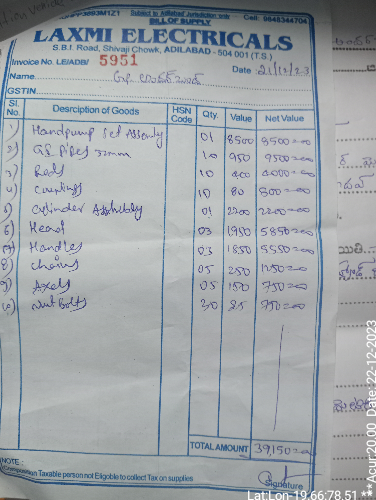 Subject to Adilabad Jurisdiction only
BILL OF SUPPLY
Cell: 9848344704
LAXMI ELECTRICALS
S.B.I. Road, Shivaji Chowk, ADILABAD - 504 001 (T.S.)
Invoice No. LE/ADB/ 5951
Date :
Name
GSTIN
Sl. No. Desrciption of Goods HSN Code Qty. Value Net Value
1) Handpump Set Assembly 01 8500 8500=00
2) G.I. Pipes 32mm 10 950 9500=00
3) Rods 10 400 4000=00
4) Couplings 10 80 800=00
5) Cylinder Assembly 01 2200 2200=00
6) Head 03 1950 5850=00
7) Handles 03 1850 5550=00
8) Chains 05 250 1250=00
9) Axels 05 150 750=00
10) Nut Bolts 30 25 750=00
TOTAL AMOUNT 39150=00
NOTE :
Composition Taxable person not Eligoble to collect Tax on supplies
Signature
Lat Lon -19.66:78.51
***Acur:20.00 Date:22-12-2023